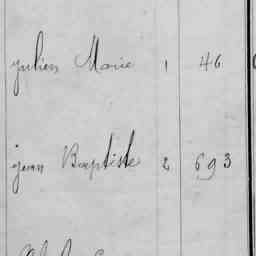 julien Marie 1 46
jean Baptiste 2 693